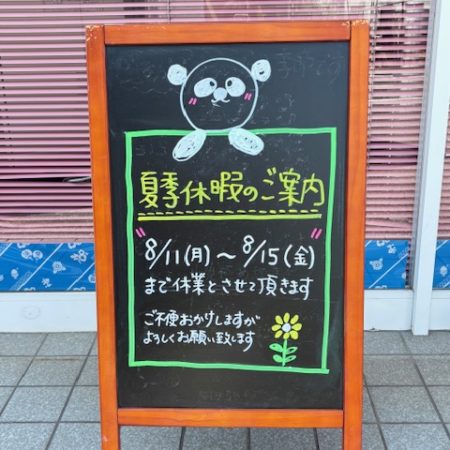 夏季休暇のご案内
8/11(月)～8/15(金)
まで休業とさせて頂きます
ご不便おかけしますが
よろしくお願い致します